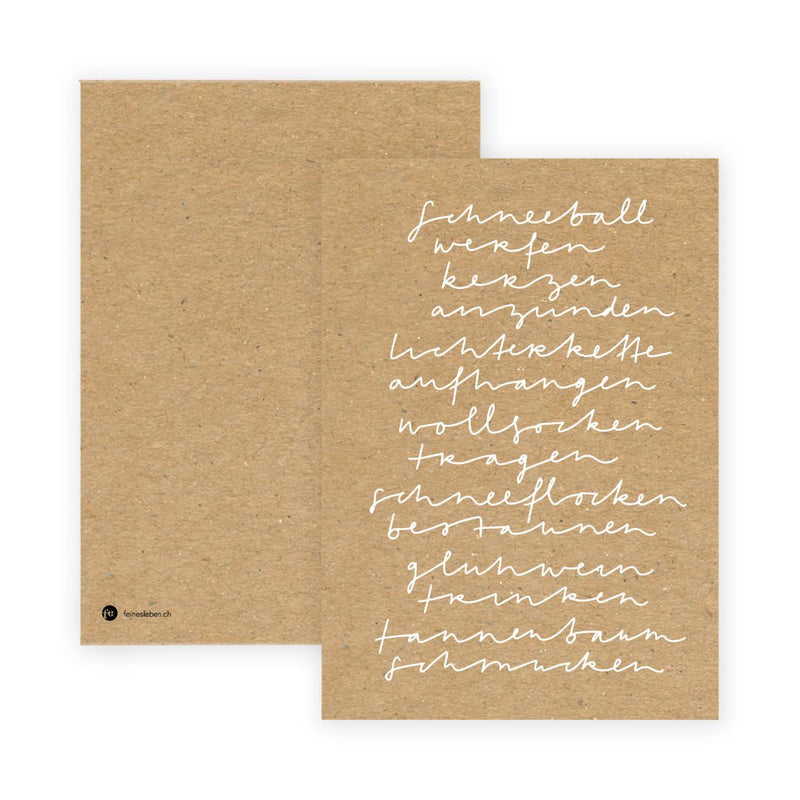 schneeball
werfen
kerzen
anzünden
lichterkette
aufhängen
wollsocken
tragen
schneeflocken
bestaunen
glühwein
trinken
tannenbaum
schmücken
fe
feinesleben.ch